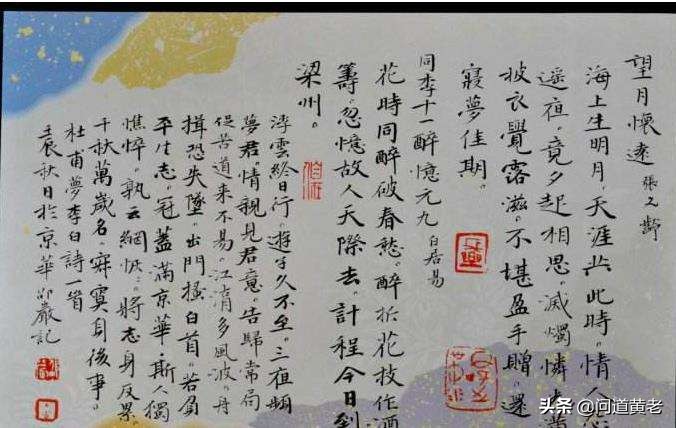 望月懷遠 張九齡
海上生明月。天涯共此時。情人怨
遥夜。竟夕起相思。滅燭憐光滿
披衣覺露滋。不堪盈手贈。還
寢夢佳期。
同李十一醉憶元九 白居易
花時同醉破春愁。醉折花枝作酒
籌。忽憶故人天際去。計程今日到
梁州。
浮雲終日行。遊子久不至。三夜頻
夢君。情親見君意。告歸常局
促苦道来不易。江湖多風波。舟
楫恐失墜。出門搔白首。若負
平生志。冠蓋滿京華。斯人獨
憔悴。孰云網恢。將老身反累。
千秋萬歲名。寂寞身後事。
杜甫夢李白詩一首
壬辰秋日於京華邵嚴記
头条 @问道黄老